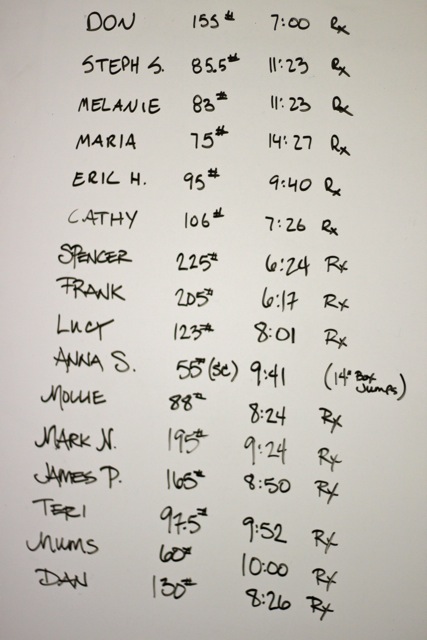 DON 155# 7:00 Rx
STEPH S. 85.5# 11:23 Rx
MELANIE 83# 11:23 Rx
MARIA 75# 14:27 Rx
ERIC H. 95# 9:40 Rx
CATHY 106# 7:26 Rx
SPENCER 225# 6:24 Rx
FRANK 205# 6:17 Rx
LUCY 123# 8:01 Rx
ANNA S. 55# (SC) 9:41 (14" Box Jumps)
MOLLIE 88# 8:24 Rx
MARK N. 195# 9:24 Rx
JAMES P. 165# 8:50 Rx
TERI 97.5# 9:52 Rx
MUMS 60# 10:00 Rx
DAN 130# 8:26 Rx